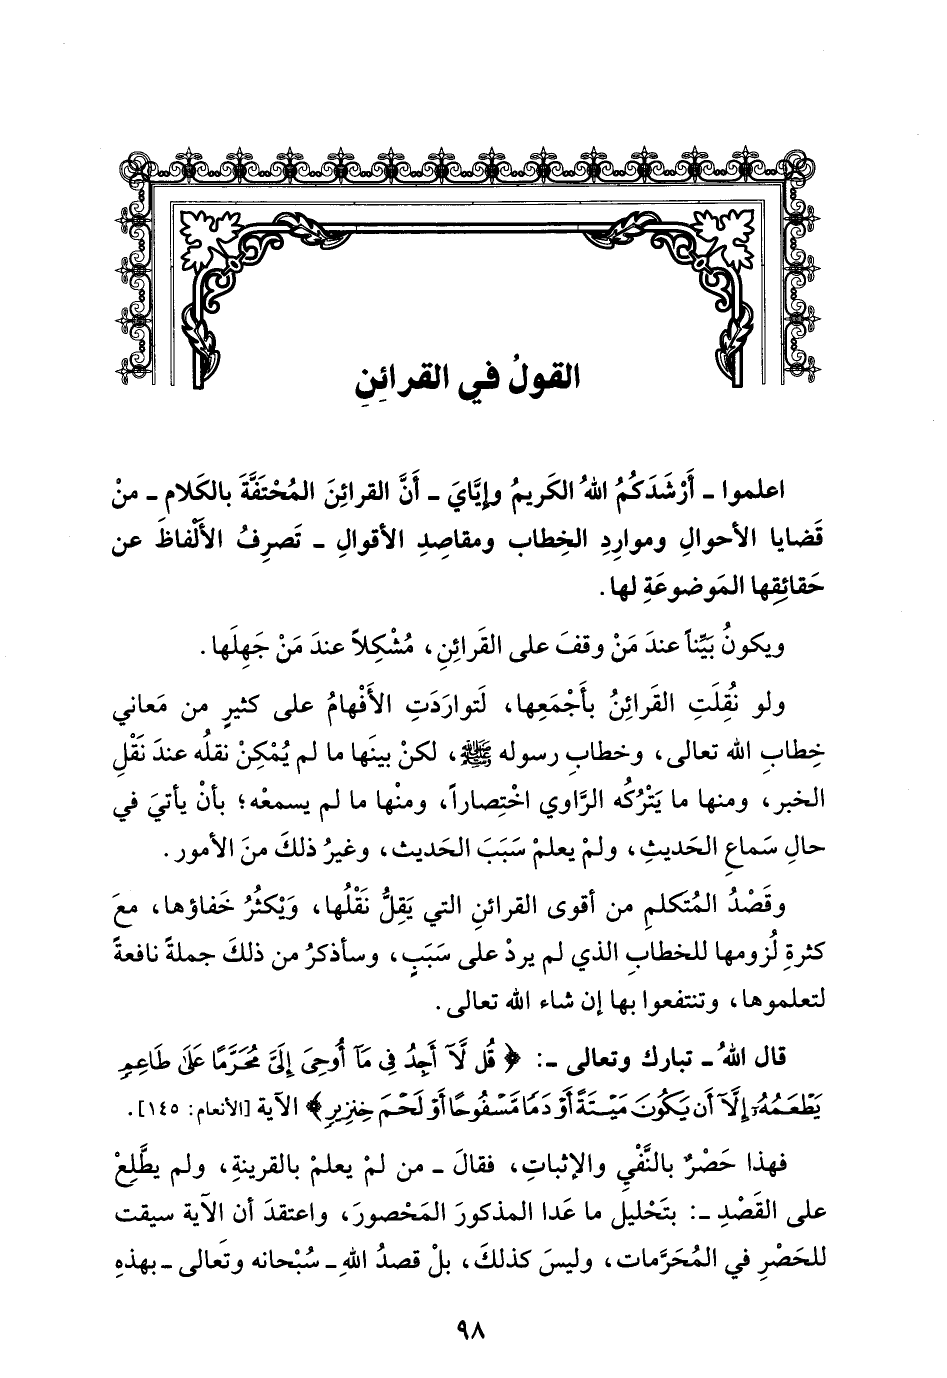 القولُ في القرائِنِ
اعلموا ـ أَرْشَدَكُمُ اللهُ الكريمُ وإيَّايَ ـ أَنَّ القرائِنَ المُحْتَفَّةَ بالكَلام ـ منْ
قَضايا الأحوالِ ومواردِ الخِطاب ومقاصِدِ الأقوالِ ـ تَصرِفُ الأَلْفاظَ عن
حَقائِقِها المَوضوعَةِ لها.
ويكونُ بَيِّناً عندَ مَنْ وقفَ على القَرائِنِ، مُشْكِلاً عندَ مَنْ جَهِلَها.
ولو نُقِلَتِ القَرائِنُ بأَجْمَعِها، لَتوارَدَتِ الأَفْهامُ على كثيرٍ من مَعاني
خِطابِ الله تعالى، وخطابِ رسوله ﷺ، لكنْ بينَها ما لم يُمْكِنْ نقلُه عندَ نَقْلِ
الخبر، ومنها ما يَتْرُكُه الرَّاوي اخْتِصاراً، ومنْها ما لم يسمعْه؛ بأنْ يأتيَ في
حالِ سَماعِ الحَديثِ، ولمْ يعلمْ سَبَبَ الحَديث، وغيرُ ذلكَ منَ الأمور.
وقَصْدُ المُتكلمِ من أقوى القرائنِ التي يَقِلُّ نَقْلُها، وَيْكثُرُ خَفاؤها، معَ
كثرةِ لُزومها للخطابِ الذي لم يردْ على سَبَبٍ، وسأذكرُ من ذلكَ جملةً نافعةً
لتعلموها، وتنتفعوا بها إن شاء الله تعالى.
قال اللهُ ـ تبارك وتعالى ـ: ﴿قُل لَّآ أَجِدُ فِى مَآ أُوحِىَ إِلَىَّ مُحَرَّمًا عَلَىٰ طَاعِمٍ
يَطْعَمُهُۥٓ إِلَّآ أَن يَكُونَ مَيْتَةً أَوْ دَمًا مَّسْفُوحًا أَوْ لَحْمَ خِنزِيرٍ﴾ الآية [الأنعام: ١٤٥].
فهذا حَصْرٌ بالنَّفْيِ والإثباتِ، فقالَ ـ من لمْ يعلمْ بالقرينةِ، ولم يطَّلِعْ
على القَصْدِ ـ: بتَحْليل ما عَدا المذكورَ المَحْصورَ، واعتقدَ أن الآية سيقت
للحَصْرِ في المُحَرَّمات، وليسَ كذلكَ، بلْ قصدُ اللهِ ـ سُبْحانه وتَعالى ـ بهذهِ
٩٨